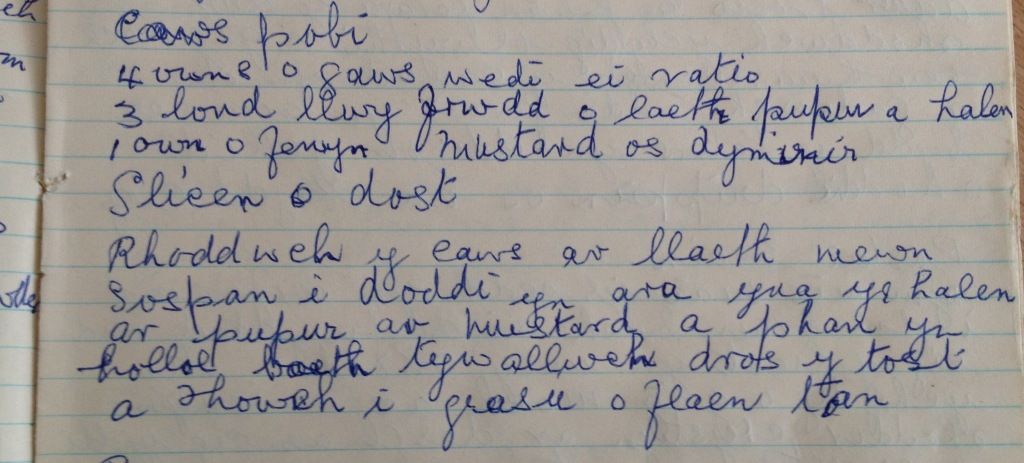 Caws pobi
4 owns o gaws wedi ei ratio
3 lond llwy frwdd o laeth pupur a halen
1 own o fenyn mustard os dymunir
Slicen o dost
Rhoddwch y caws ar llaeth mewn
sospan i doddi yn ara yna yr halen
ar pupur ar mustard a phan yn
hollol boeth tywallwch dros y tost
a rhowch i grasu o flaen tan